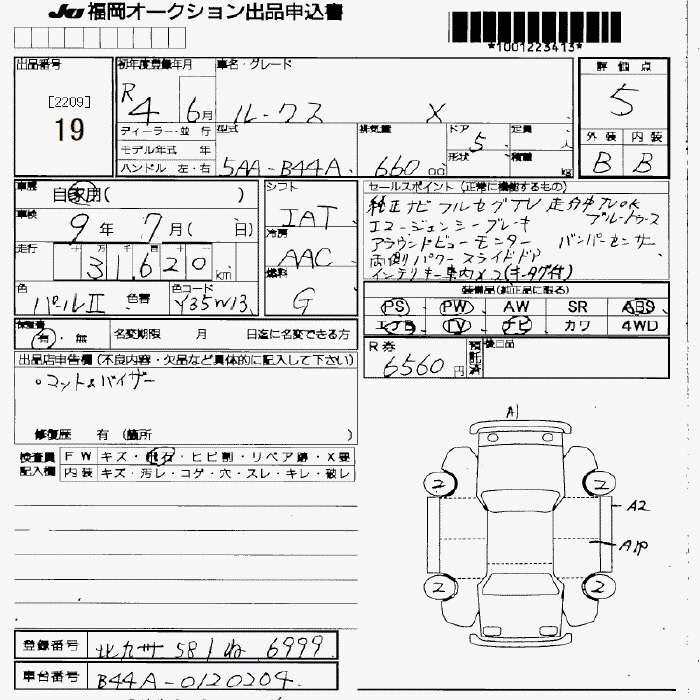 JU 福岡オークション出品申込書
*1001223413*
出品番号
[2209]
19
初年度登録年月
R4 6月
車名・グレード
ルークス X
評価点
5
外装 内装
B B
ディーラー・並 行
モデル年式 年
ハンドル 左・右
型式
5AA-B44A
排気量
660 cc
ドア 5
形状
定員 人
積載 kg
車歴
自家用( )
車検
9年 7月( 日)
走行
十 万 千 百 十 一
31,620 km
色
パールII
色替
色コード
Y35W13
シフト
IAT
冷房
AAC
燃料
G
セールスポイント(正常に機能するもの)
純正ナビ フルセグTV 走行中TVOK
エマージェンシーブレーキ ブルートゥース
アラウンドビューモニター バンパーセンサー
両側パワースライドドア
インテリキー車内×2(キータグ付)
装備品(純正品に限る)
PS PW AW SR ABS
エアB TV ナビ カワ 4WD
保証書
有・無
名変期限 月 日迄に名変できる方
R券
6560円
預託済
後日品
出品店申告欄(不良内容・欠品など具体的に記入して下さい)
・マット&バイザー
修復歴 有 (箇所 )
検査員記入欄
FW キズ・飛石・ヒビ割・リペア跡・X要
内装 キズ・汚レ・コゲ・穴・スレ・キレ・破レ
A1
2 2
A2
A1P
2 2
登録番号 北九州 581 ね 6999
車台番号 B44A-0120204